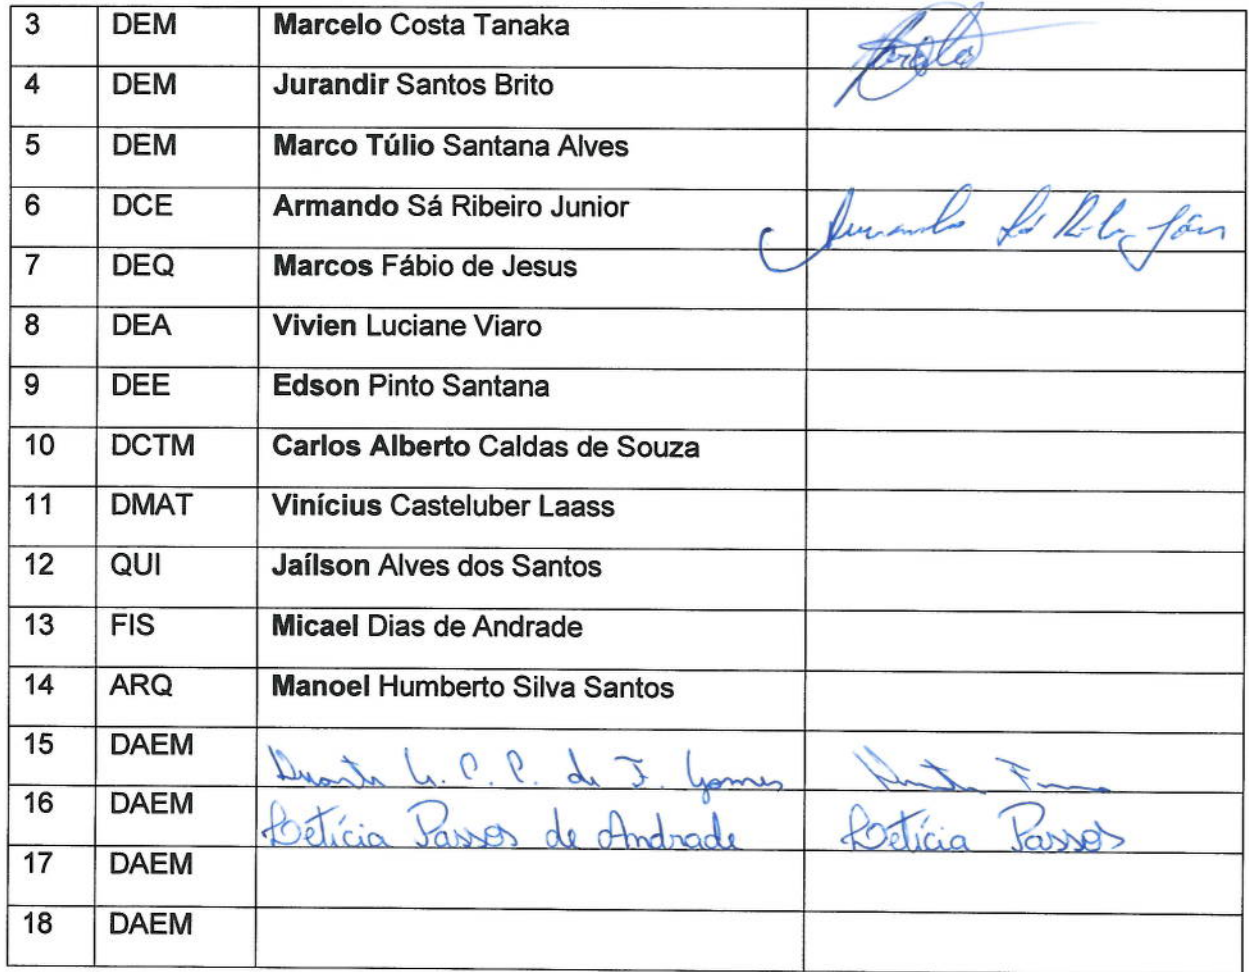 3 DEM Marcelo Costa Tanaka
4 DEM Jurandir Santos Brito
5 DEM Marco Túlio Santana Alves
6 DCE Armando Sá Ribeiro Junior Armando Sá
7 DEQ Marcos Fábio de Jesus
8 DEA Vivien Luciane Viaro
9 DEE Edson Pinto Santana
10 DCTM Carlos Alberto Caldas de Souza
11 DMAT Vinícius Casteluber Laass
12 QUI Jaílson Alves dos Santos
13 FIS Micael Dias de Andrade
14 ARQ Manoel Humberto Silva Santos
15 DAEM Duarte G. C. P. de F. Gomes
16 DAEM Letícia Passos de Andrade Letícia Passos
17 DAEM
18 DAEM